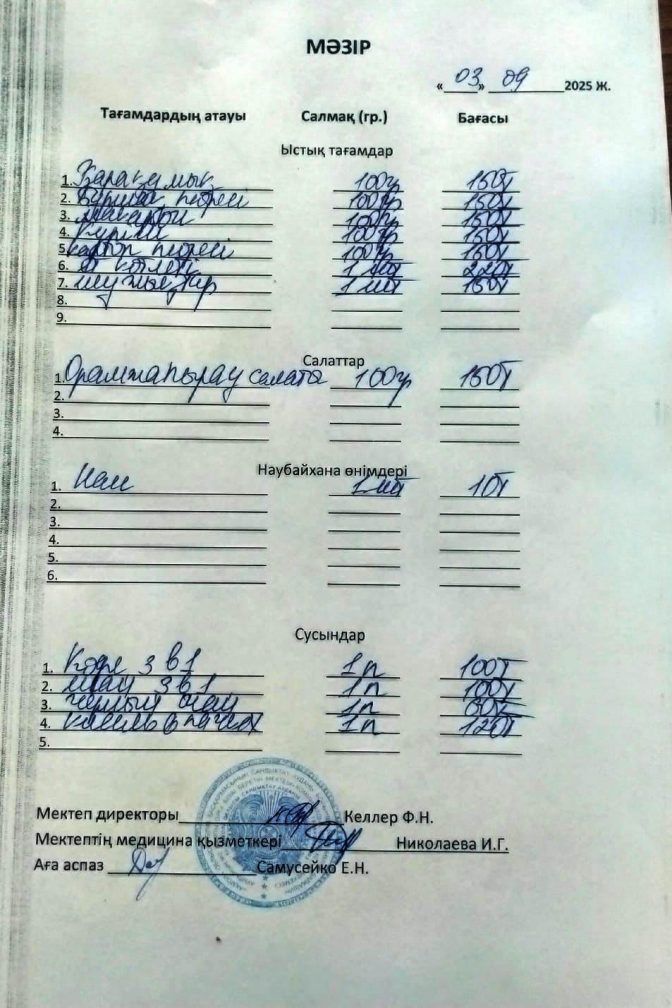 МӘЗІР
« 03 » 09 2025 Ж.
Тағамдардың атауы Салмақ (гр.) Бағасы
Ыстық тағамдар
1. Қарақұмық 100гр 150т
2. Бұршақ пюресі 100гр 150т
3. Макарон 100гр 150т
4. Күріш 100гр 150т
5. картоп пюресі 100гр 150т
6. котлеті 1 шт 220т
7. шұжықтар 1 шт 150т
8.
9.
Салаттар
1. Орамжапырақ салаты 100гр 150т
2.
3.
4.
Наубайхана өнімдері
1. Нан 1 шт 10т
2.
3.
4.
5.
6.
Сусындар
1. Кофе 3 в 1 1п 100т
2. шай 3 в 1 1п 100т
3. чай 1п
4. кисель в пачке 1п 120т
5.
Мектеп директоры Келлер Ф.Н.
Мектептің медицина қызметкері Николаева И.Г.
Аға аспаз Самусейко Е.Н.